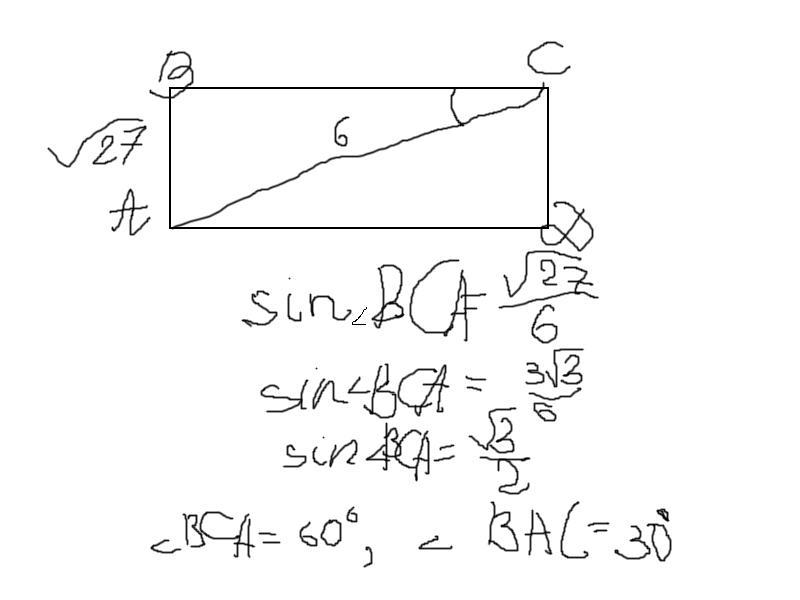 B
C
√27
6
A
D
sin∠BCA = √27/6
sin∠BCA = 3√3/6
sin∠BCA = √3/2
∠BCA = 60°, ∠BAC = 30°